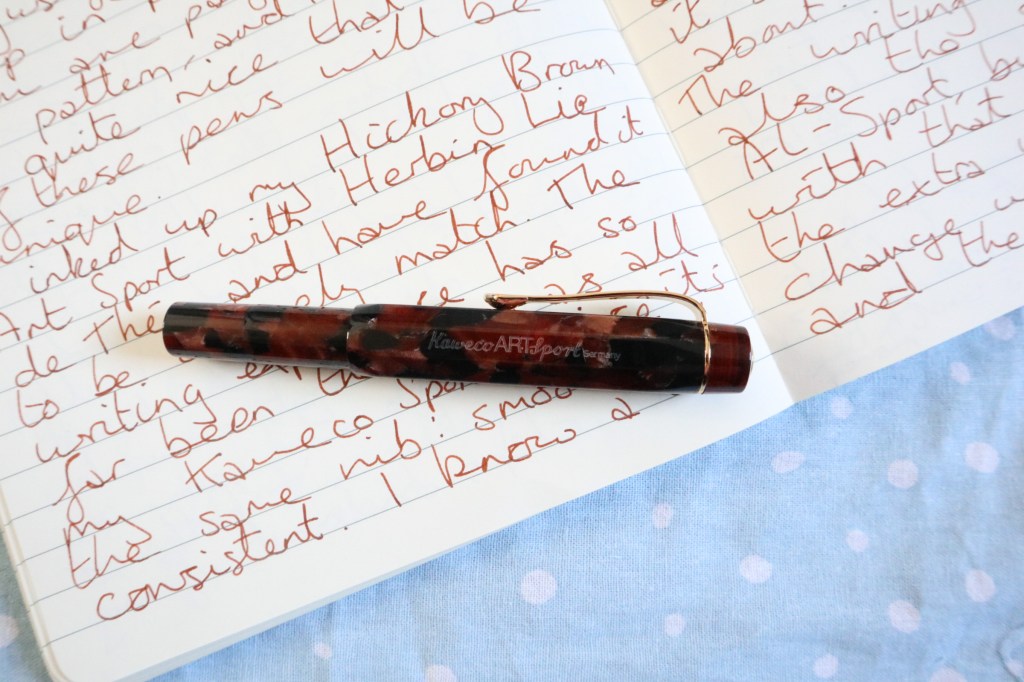 up in
are
patten, and that
quite nice will be
of these pens
unique.
inked up my Hickory Brown
Art Sport with Herbin Lie
de Thé and have found it
to be match. The
writing has so
far been as all
my Kaweco its
the same nib:
consistent. I know a
it
about.
The writing
also the
AL-Sport,
with that
the extra
change
and the
KawecoARTSport Germany